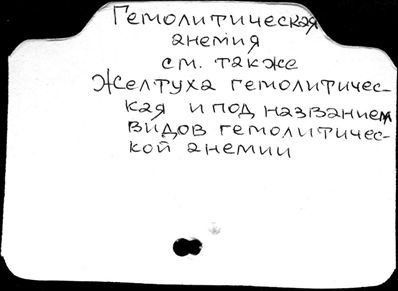 Гемолитическая
анемия
см. также
Желтуха гемолитичес-
кая и под названием
видов гемолитичес-
кой анемии